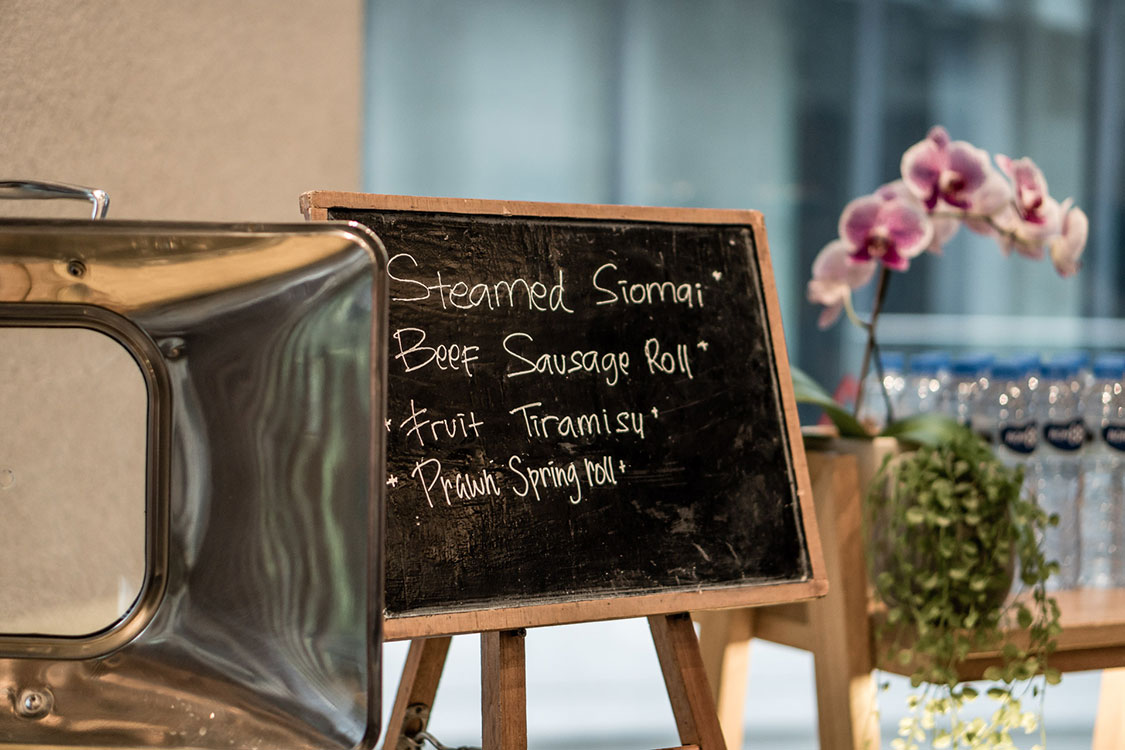 Steamed Siomai +
Beef Sausage Roll +
+ Fruit Tiramisu +
+ Prawn Spring roll +